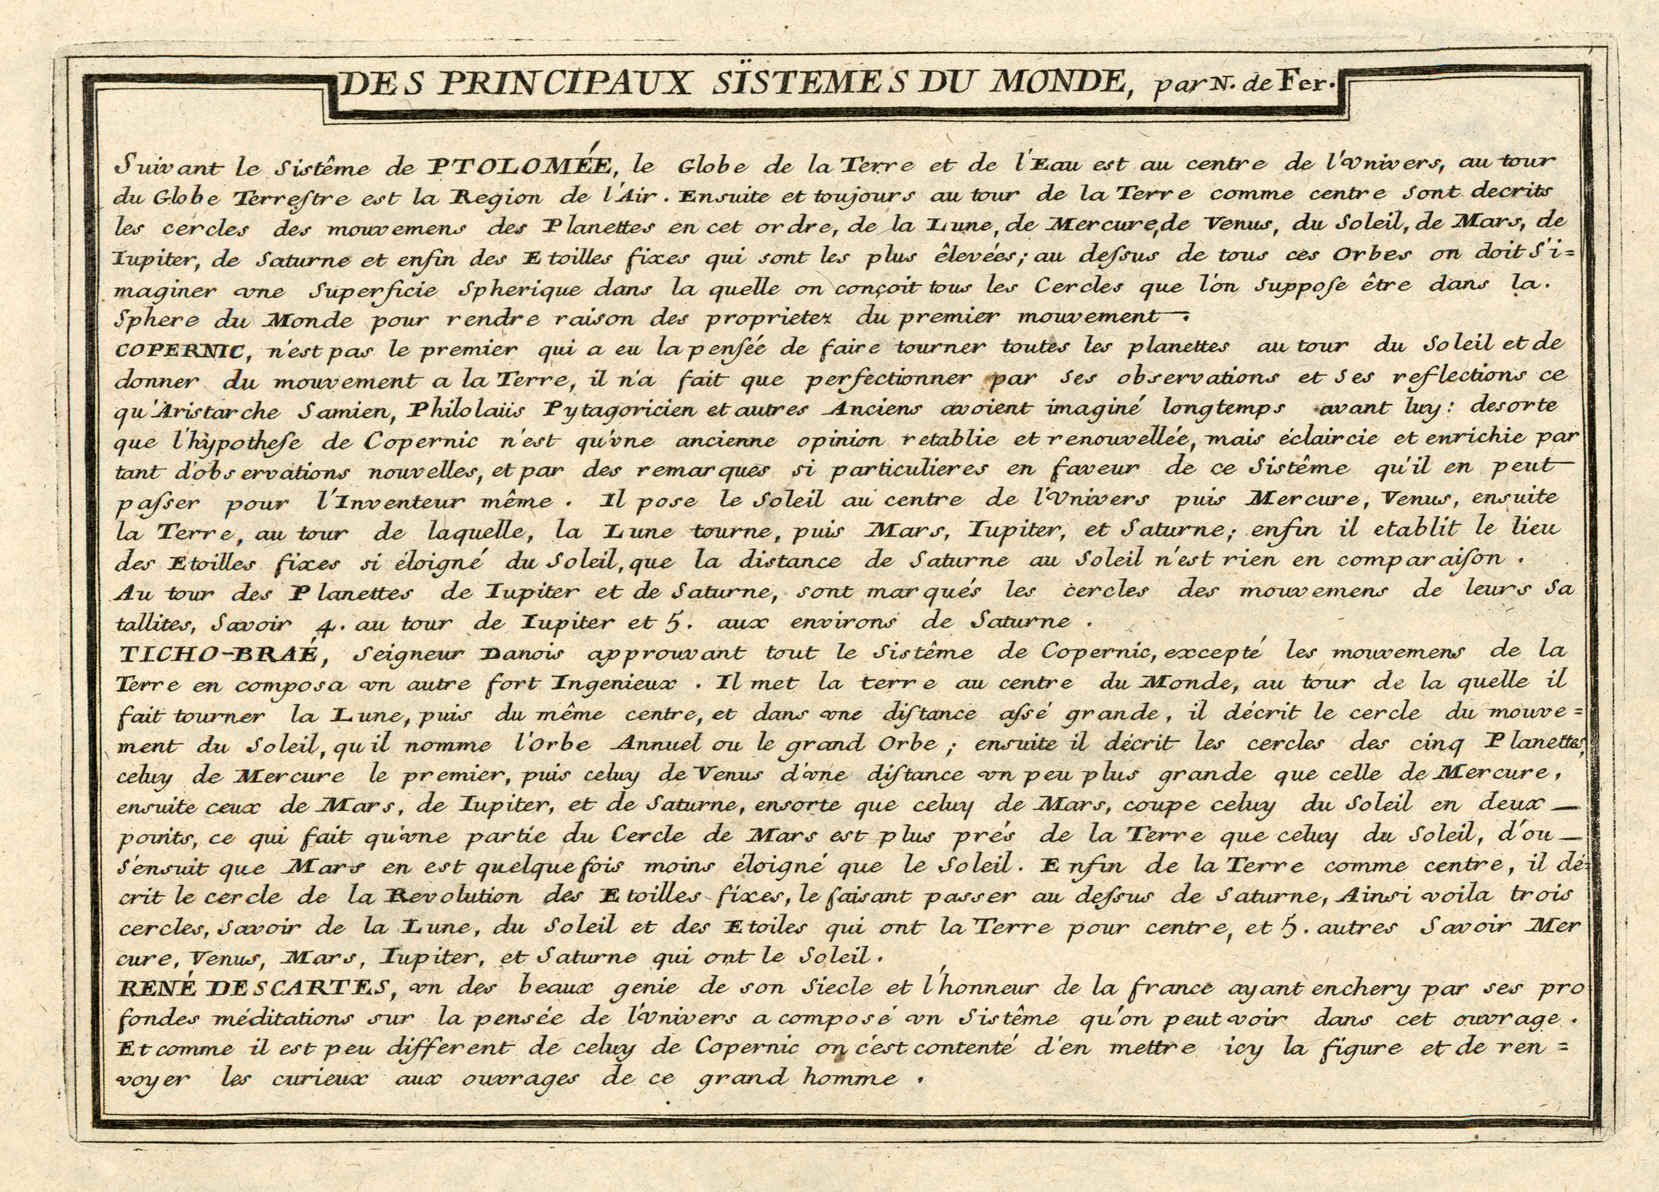 DES PRINCIPAUX SÏSTEMES DU MONDE, par N. de Fer.
Suivant le Sistême de PTOLOMÉE, le Globe de la Terre et de l'Eau est au centre de l'Vnivers, au tour
du Globe Terreſtre est la Region de l'Air. Ensuite et toujours au tour de la Terre comme centre sont decrits
les cercles des mouvemens des Planettes en cet ordre, de la Lune, de Mercure, de Venus, du Soleil, de Mars, de
Iupiter, de Saturne et enfin des Etoilles fixes qui sont les plus êlevées; au deſsus de tous ces Orbes on doit S'i=
maginer vne Superficie Spherique dans la quelle on conçoit tous les Cercles que l'on Suppoſe être dans la.
Sphere du Monde pour rendre raison des proprietez du premier mouvement.
COPERNIC, n'est pas le premier qui a eu la penſée de faire tourner toutes les planettes au tour du Soleil et de
donner du mouvement a la Terre, il n'a fait que perfectionner par Ses observations et Ses reflections ce
qu'Aristarche Samien, Philolaüs Pytagoricien et autres Anciens avoient imaginé longtemps avant luy: desorte
que l'hypotheſe de Copernic n'est qu'vne ancienne opinion retablie et renouvellée, mais éclaircie et enrichie par
tant d'observations nouvelles, et par des remarques si particulieres en faveur de ce Sistême qu'il en peut
paſser pour l'Inventeur même. Il pose le Soleil au centre de l'Vnivers puis Mercure, Venus, ensuite
la Terre, au tour de laquelle, la Lune tourne, puis Mars, Iupiter, et Saturne; enfin il etablit le lieu
des Etoilles fixes si éloigné du Soleil, que la distance de Saturne au Soleil n'est rien en comparaiſon.
Au tour des Planettes de Iupiter et de Saturne, sont marqués les cercles des mouvemens de leurs Sa
tallites, Savoir 4. au tour de Iupiter et 5. aux environs de Saturne.
TICHO-BRAÉ, Seigneur Danois approuvant tout le Sistême de Copernic, excepté les mouvemens de la
Terre en composa vn autre fort Ingenieux. Il met la terre au centre du Monde, au tour de la quelle il
fait tourner la Lune, puis du même centre, et dans vne diſtance aſsé grande, il décrit le cercle du mouve=
ment du Soleil, qu il nomme l'Orbe Annuel ou le grand Orbe; ensuite il décrit les cercles des cinq Planettes,
celuy de Mercure le premier, puis celuy de Venus d'vne diſtance vn peu plus grande que celle de Mercure,
ensuite ceux de Mars, de Iupiter, et de Saturne, ensorte que celuy de Mars, coupe celuy du Soleil en deux
points, ce qui fait qu'vne partie du Cercle de Mars est plus prés de la Terre que celuy du Soleil, d'ou
S'ensuit que Mars en est quelquefois moins éloigné que le Soleil. Enfin de la Terre comme centre, il dé=
crit le cercle de la Revolution des Etoilles fixes, le faisant passer au deſsus de Saturne, Ainsi voila trois
cercles, Savoir de la Lune, du Soleil et des Etoiles qui ont la Terre pour centre, et 5. autres Savoir Mer
cure, Venus, Mars, Iupiter, et Saturne qui ont le Soleil.
RENÉ DESCARTES, vn des beaux genie de son Siecle et l'honneur de la france ayant enchery par ses pro
fondes méditations sur la pensée de l'Vnivers a composé vn Sistême qu'on peut voir dans cet ouvrage.
Et comme il est peu different de celuy de Copernic on c'est contenté d'en mettre icy la figure et de ren=
voyer les curieux aux ouvrages de ce grand homme.